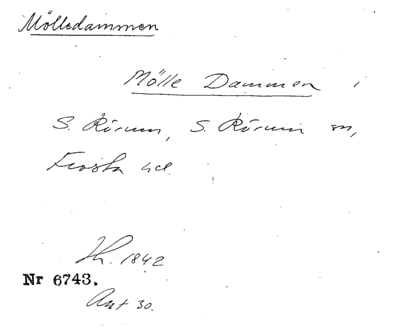 Mölledammen
Mölle Dammen i
S. Rörum, S. Rörum sn,
Frosta hd.
Lh. 1842
Nr 6743.
Akt 30.